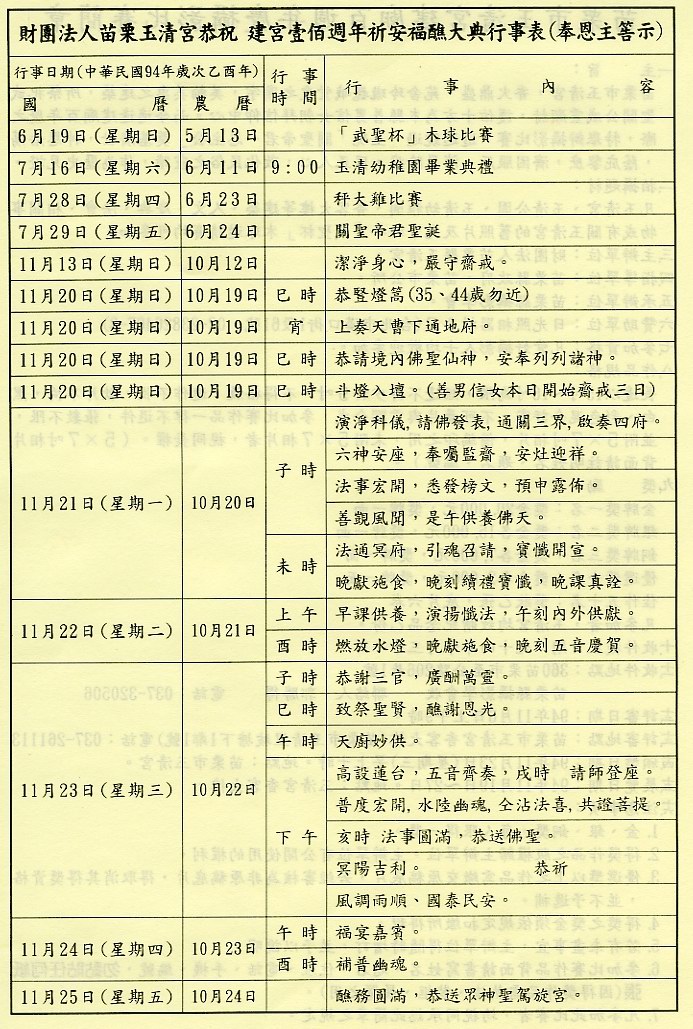 財團法人苗栗玉清宮恭祝 建宮壹佰週年祈安福醮大典行事表(奉恩主筶示)
行事日期(中華民國94年歲次乙酉年) 行事時間 行事內容
國曆 農曆
6月19日(星期日) 5月13日 「武聖杯」木球比賽
7月16日(星期六) 6月11日 9:00 玉清幼稚園畢業典禮
7月28日(星期四) 6月23日 秤大雞比賽
7月29日(星期五) 6月24日 關聖帝君聖誕
11月13日(星期日) 10月12日 潔淨身心,嚴守齋戒。
11月20日(星期日) 10月19日 巳時 恭豎燈篙(35、44歲勿近)
11月20日(星期日) 10月19日 宵 上奏天曹下通地府。
11月20日(星期日) 10月19日 巳時 恭請境內佛聖仙神,安奉列列諸神。
11月20日(星期日) 10月19日 巳時 斗燈入壇。(善男信女本日開始齋戒三日)
11月21日(星期一) 10月20日 子時 演淨科儀,請佛發表,通關三界,啟奏四府。
六神安座,奏囑監齋,安灶迎祥。
法事宏開,悉發榜文,預申露佈。
善觀風聞,是午供養佛天。
未時 法通冥府,引魂召請,寶懺開宣。
晚獻施食,晚刻續禮寶懺,晚課真詮。
11月22日(星期二) 10月21日 上午 早課供養,演揚懺法,午刻內外供獻。
酉時 燃放水燈,晚獻施食,晚刻五音慶賀。
11月23日(星期三) 10月22日 子時 恭謝三官,廣酬萬靈。
巳時 致祭聖賢,醮謝恩光。
午時 天廚妙供。
下午 高設蓮台,五音齊奏,戌時 請師登座。
普度宏開,水陸幽魂,仝沾法喜,共證菩提。
亥時 法事圓滿,恭送佛聖。
冥陽吉利。 恭祈
風調雨順、國泰民安。
11月24日(星期四) 10月23日 午時 福宴嘉賓。
酉時 補普幽魂。
11月25日(星期五) 10月24日 醮務圓滿,恭送眾神聖駕旋宮。